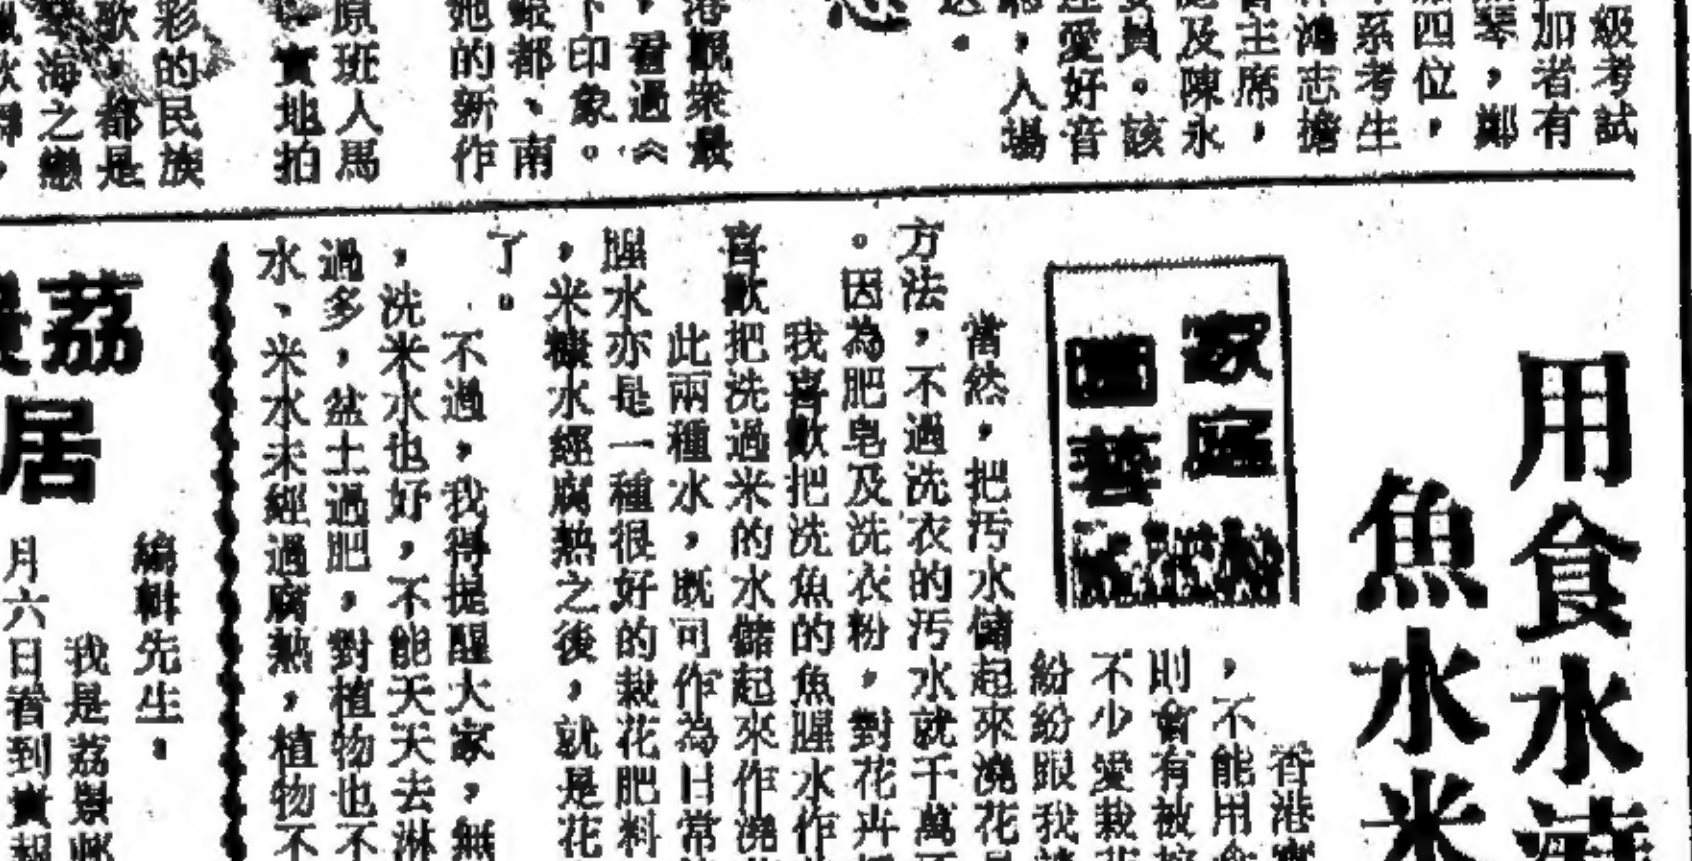 級考試
加者有
琴，鄭
四位，
系考生
鴻志擔
主席，
及陳永
員。該
愛好音
，入場
港觀眾最
，看過《
下印象。
銀都、南
她的新作
原班人馬
實地拍
彩的民族
歌，都是
海之戀
用食水澆
魚水米
家庭
園藝
香港實
，不能用食
則會有被控
不少愛栽花
紛紛跟我談
當然，把污水儲起來澆花是
方法，不過洗衣的污水就千萬不
。因為肥皂及洗衣粉，對花卉
我喜歡把洗魚的魚腥水作
喜歡把洗過米的水儲起來作澆
此兩種水，既可作為日常
腥水亦是一種很好的栽花肥料
，米糠水經腐熱之後，就是花
了。
不過，我得提醒大家，無
，洗米水也好，不能天天去淋
過多，盆土過肥，對植物也不
水、米水未經過腐熱，植物不
荔景
居
編輯先生：
我是荔景邨
月六日看到貴報